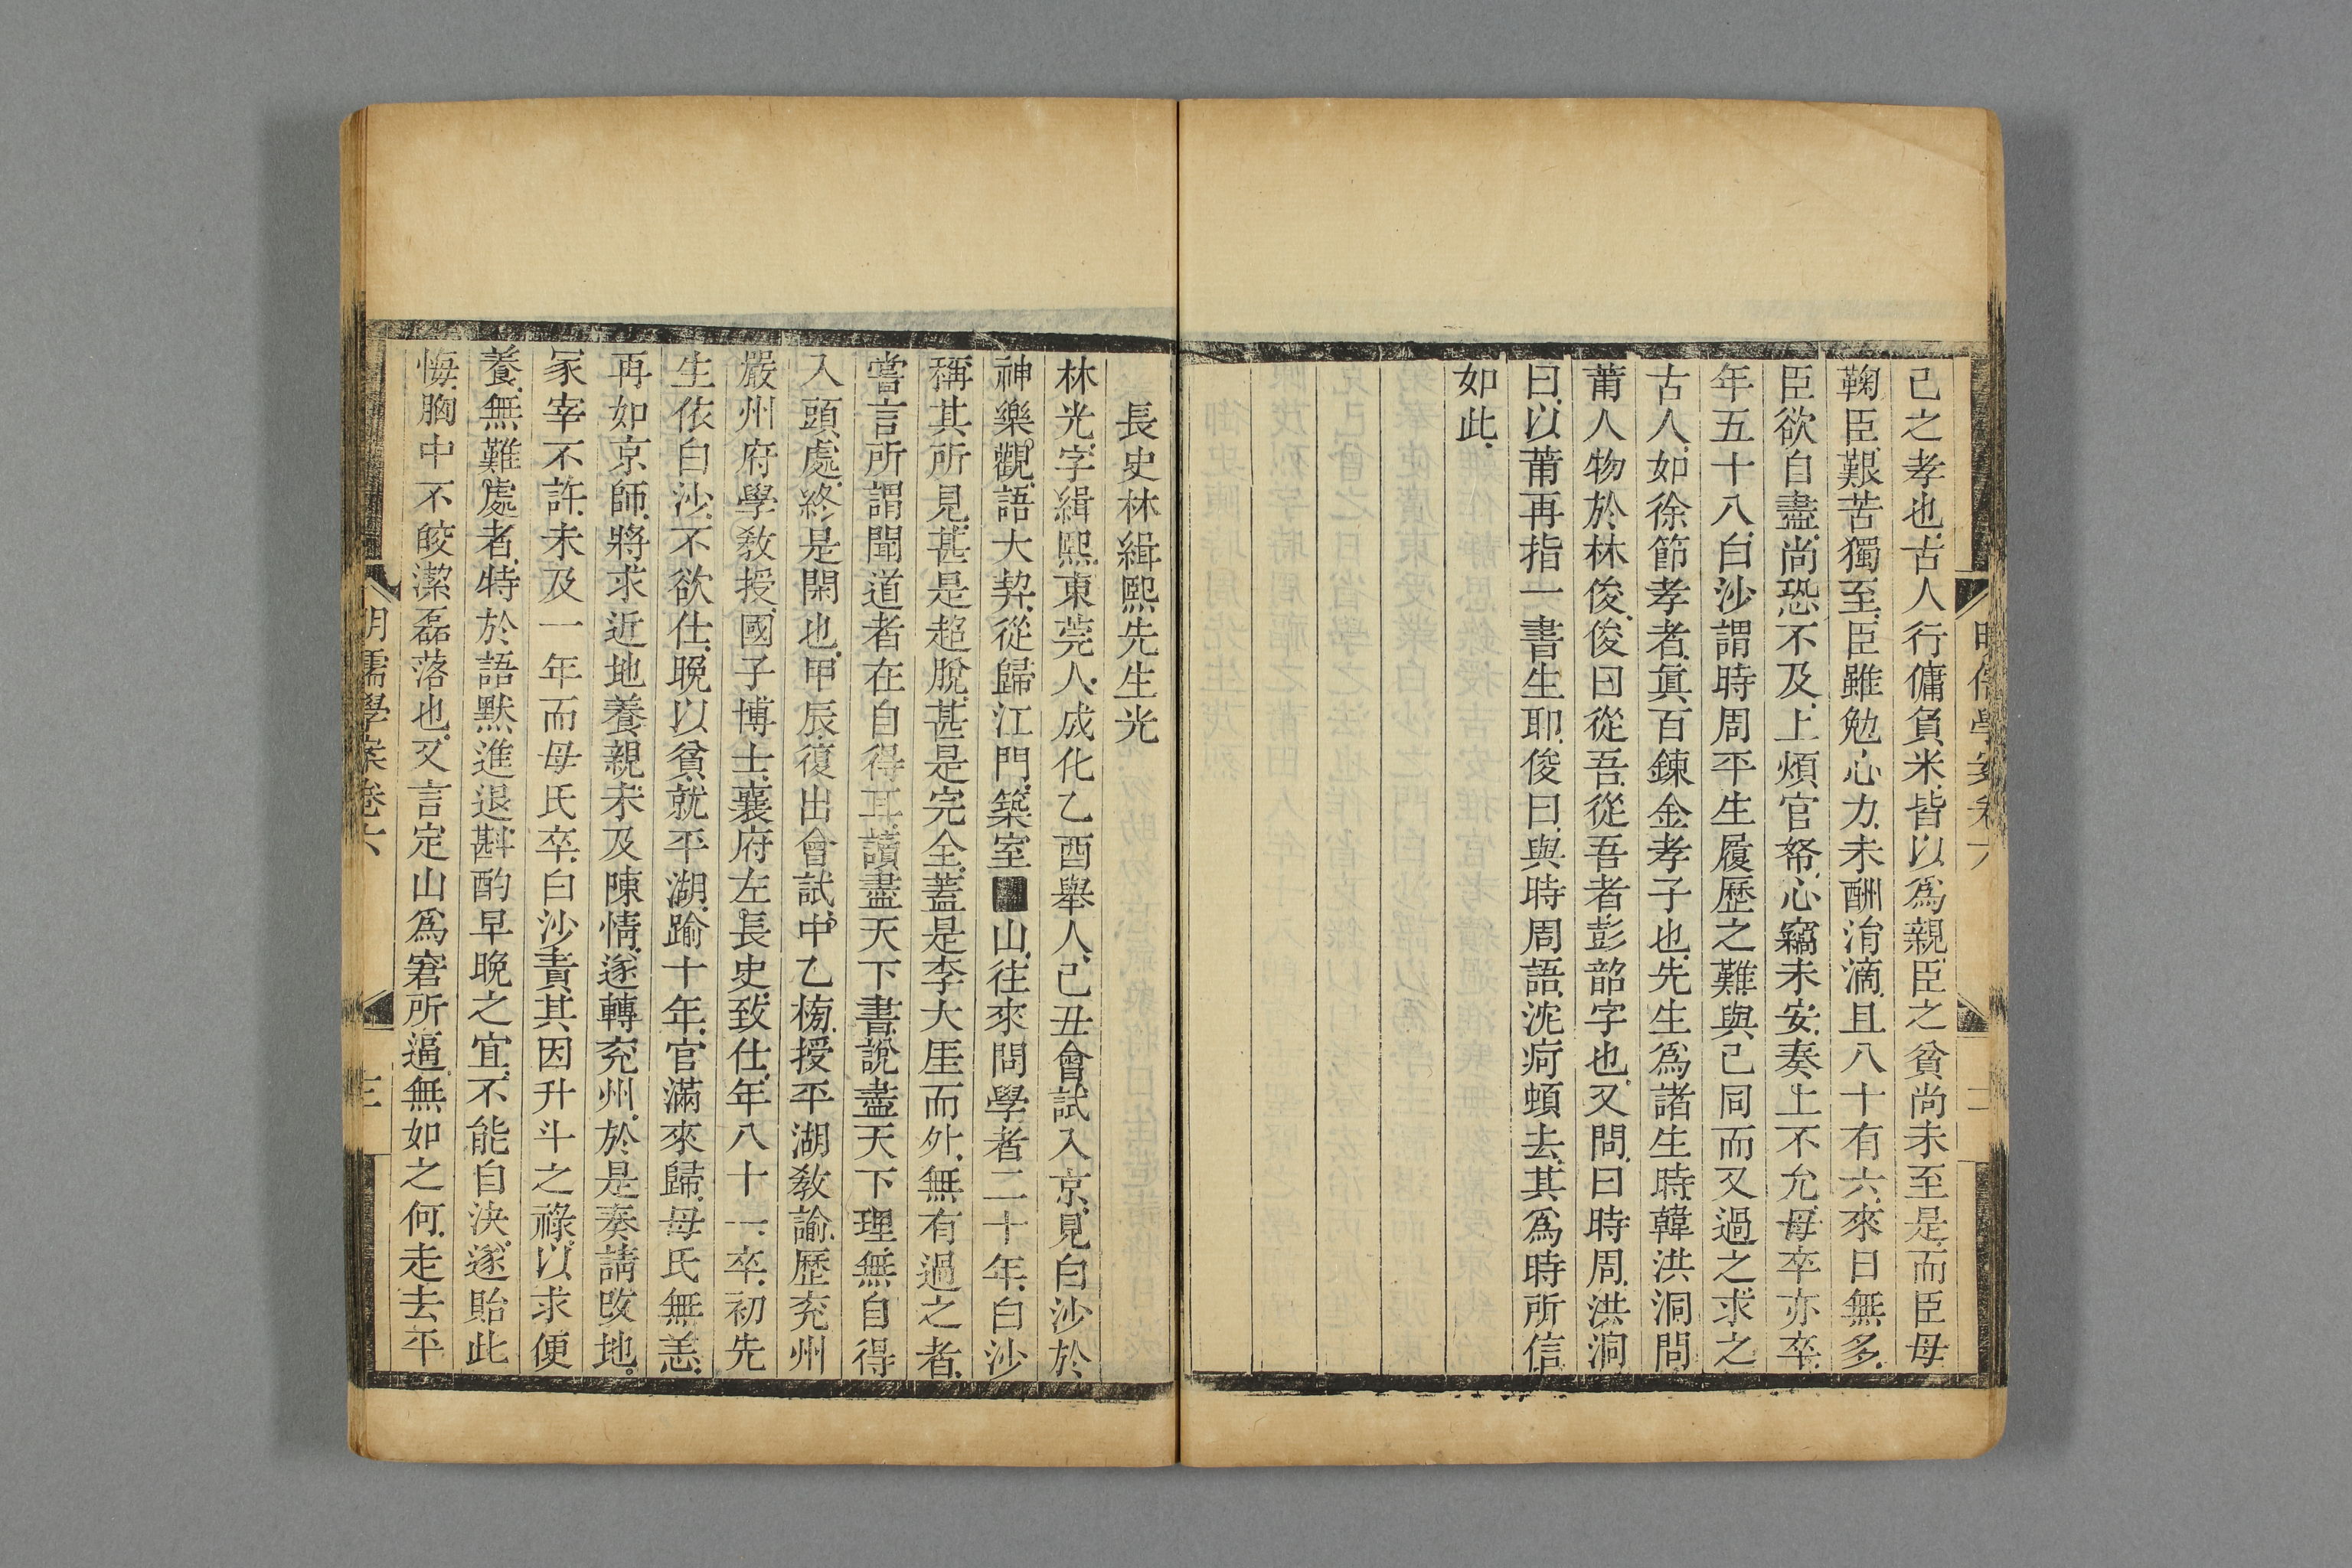 己之孝也古人行傭負米皆以爲親臣之貧尚未至是而臣母
鞠臣艱苦獨至臣雖勉心力未酬涓滴且八十有六來日無多
臣欲自盡尚恐不及上煩官帑心竊未安奏上不允母卒亦卒
年五十八白沙謂時周平生履歷之難與己同而又過之求之
古人如徐節孝者眞百鍊金孝子也先生爲諸生時韓洪洞問
莆人物於林俊俊曰從吾從吾者彭韶字也又問曰時周洪洞
曰以莆再指一書生耶俊曰與時周語沈疴頓去其爲時所信
如此
長史林緝熙先生光
林光字緝熙東莞人成化乙酉舉人己丑會試入京見白沙於
神樂觀語大契從歸江門築室■山往來問學者二十年白沙
稱其所見甚是超脫甚是完全蓋是李大厓而外無有過之者
嘗言所謂聞道者在自得耳讀盡天下書說盡天下理無自得
入頭處終是閑也甲辰復出會試中乙榜授平湖敎諭歷兖州
嚴州府學敎授國子博士襄府左長史致仕年八十一卒初先
生依白沙不欲仕晚以貧就平湖踰十年官滿來歸母氏無恙
再如京師將求近地養親未及陳情遂轉兖州於是奏請改地
冢宰不許未及一年而母氏卒白沙責其因升斗之祿以求便
養無難處者特於語默進退斟酌早晚之宜不能自決遂貽此
悔胸中不皎潔磊落也又言定山爲窘所逼無如之何走去平
明儒學案卷六
三